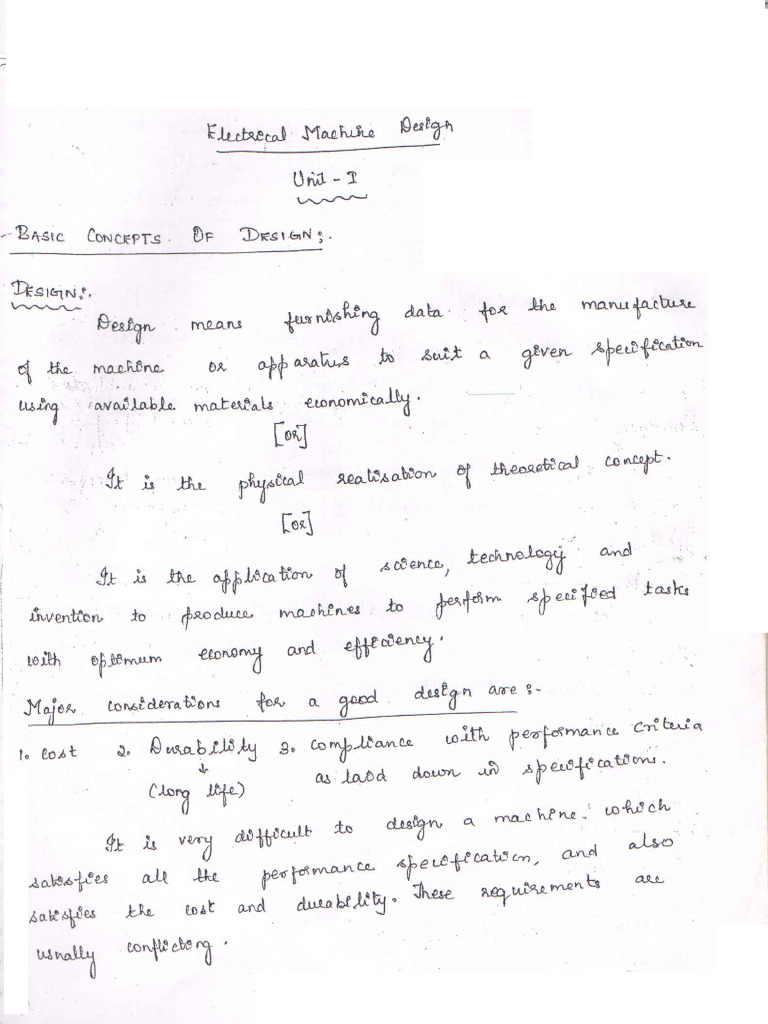 Electrical Machine Design
Unit - I
BASIC CONCEPTS OF DESIGN:.
DESIGN:.
Design means furnishing data for the manufacture
of the machine or apparatus to suit a given specification
using available materials economically.
[or]
It is the physical realisation of theoretical concept.
[or]
It is the application of science, technology and
invention to produce machines to perform specified tasks
with optimum economy and efficiency.
Major considerations for a good design are:-
1. Cost 2. Durability 3. Compliance with performance criteria
(long life) as laid down in specifications.
It is very difficult to design a machine which
satisfies all the performance specification, and also
satisfies the cost and durability. These requirements are
usually conflicting.